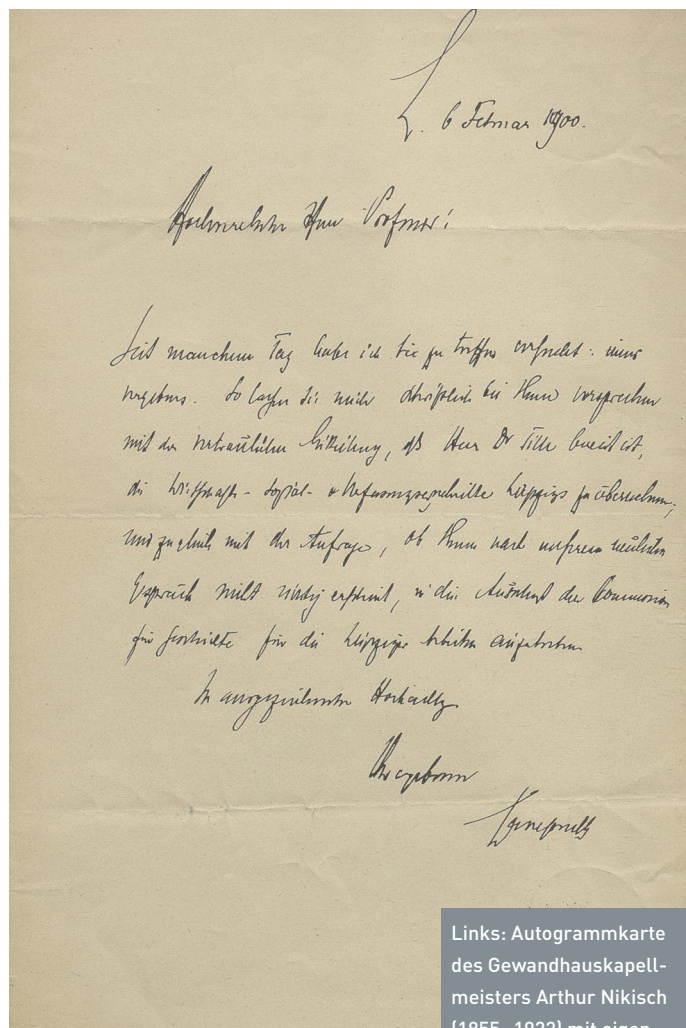 L. 6 Februar 1900.
Hochverehrter Herr Professor!
Seit manchem Tag habe ich Sie zu treffen versucht: immer
vergebens. So lassen Sie mich schriftlich bei Ihnen vorsprechen
mit der vertraulichen Mitteilung, daß Herr Dr Tille bereit ist,
die Wirthschafts-Sozial- u Verfassungsgeschichte Leipzigs zu übernehmen,
und zugleich mit der Anfrage, ob Ihnen nach unserem neulichen
Gespräch nicht richtig erscheint, in den der Commission
für Geschichte für die Leipziger Arbeiten
In ausgezeichneter Hochachtg
Ihr ergebenster
Lamprecht
Links: Autogrammkarte
des Gewandhauskapell-
meisters Arthur Nikisch
(1855–1922) mit eigen